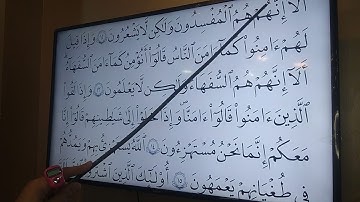 أَلَا إِنَّهُمْ هُمُ ٱلْمُفْسِدُونَ وَلَٰكِن لَّا يَشْعُرُونَ ١٢ وَإِذَا قِيلَ
لَهُمْ ءَامِنُوا۟ كَمَآ ءَامَنَ ٱلنَّاسُ قَالُوٓا۟ أَنُؤْمِنُ كَمَآ ءَامَنَ ٱلسُّفَهَآءُ
أَلَآ إِنَّهُمْ هُمُ ٱلسُّفَهَآءُ وَلَٰكِن لَّا يَعْلَمُونَ ١٣ وَإِذَا لَقُوا۟
ٱلَّذِينَ ءَامَنُوا۟ قَالُوٓا۟ ءَامَنَّا وَإِذَا خَلَوْا۟ إِلَىٰ شَيَٰطِينِهِمْ قَالُوٓا۟ إِنَّا
مَعَكُمْ إِنَّمَا نَحْنُ مُسْتَهْزِءُونَ ١٤ ٱللَّهُ يَسْتَهْزِئُ بِهِمْ وَيَمُدُّهُمْ
فِى طُغْيَٰنِهِمْ يَعْمَهُونَ ١٥ أُو۟لَٰٓئِكَ ٱلَّذِينَ ٱشْتَرَوُا۟